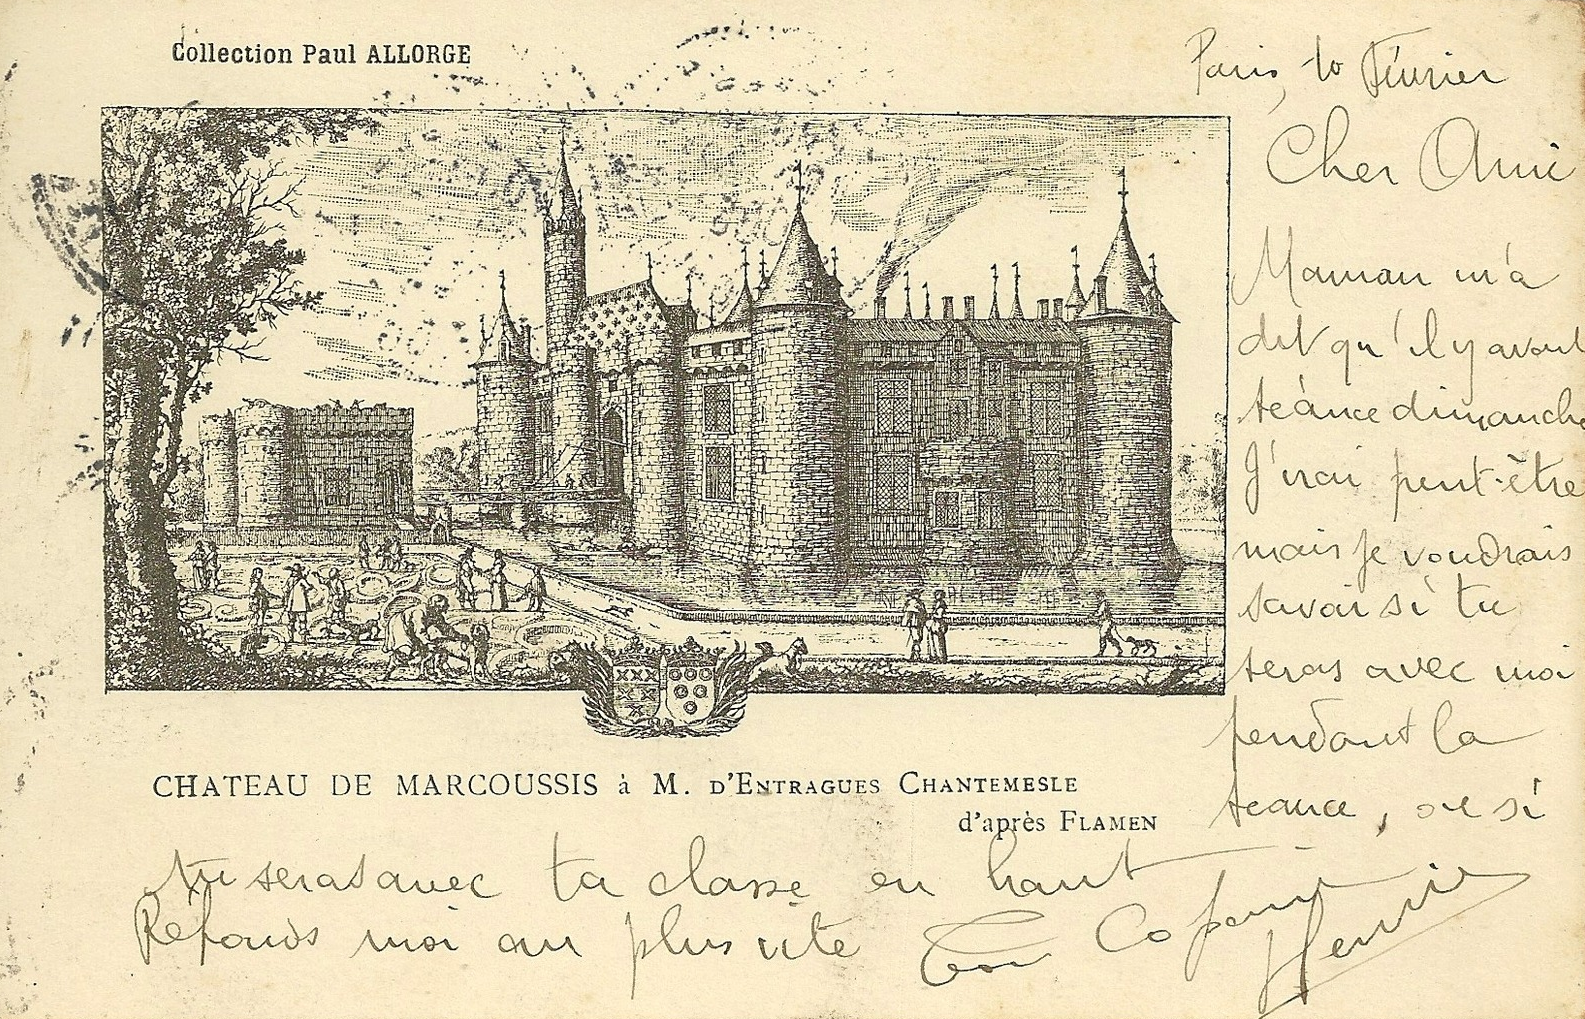 Collection Paul ALLORGE
Paris, 10 Février
Cher Ami
Maman m'a
dit qu'il y avait
séance dimanche
J'irai peut-être
mais je voudrais
savoir si tu
seras avec moi
pendant la
séance, ou si
tu seras avec ta classe en haut
Réponds moi au plus vite Ton Copain
Henri
CHATEAU DE MARCOUSSIS à M. D'ENTRAGUES CHANTEMESLE
d'après FLAMEN